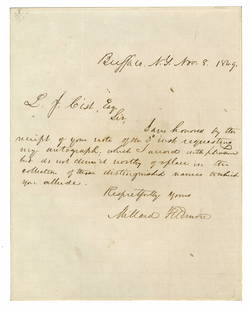 Buffalo, N.Y. Nov. 8. 1849.
L. J. Cist, Esq
Sir
I am honored by the
receipt of your note of the 3d inst requesting
my autograph, which I accord with pleasure
but do not deem it worthy of a place in the
collection of those distinguished names to which
you allude.
Respectfully Yours
Millard Fillmore